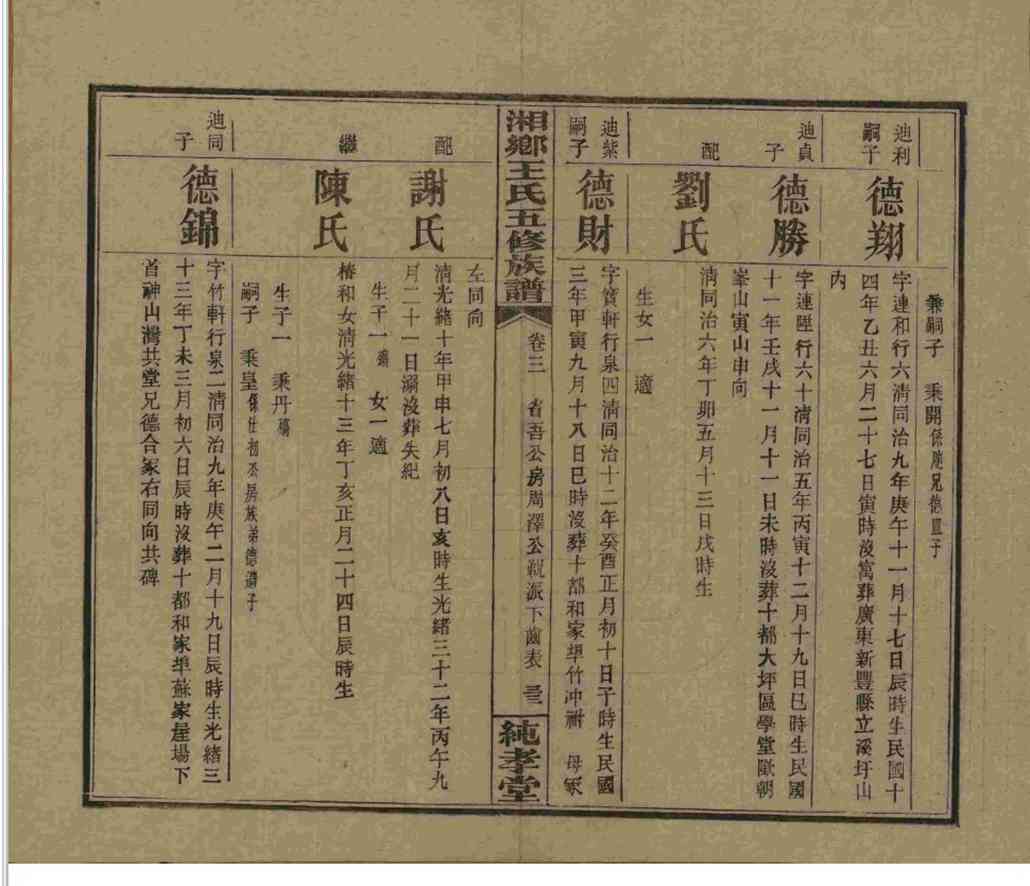 兼嗣子 秉開係胞兄德皿子
迪利
嗣子
德翔
字連和行六清同治九年庚午十一月十七日辰時生民國十
四年乙丑六月二十七日寅時沒寓葬廣東新豐縣立溪圩山
內
迪貞
子
德勝
字連陞行六十清同治五年丙寅十二月十九日巳時生民國
十一年壬戌十一月十一日未時沒葬十都大坪區學堂歐朝
峯山寅山申向
配
劉氏
清同治六年丁卯五月十三日戌時生
生女一 適
迪紫
嗣子
德財
字寶軒行泉四清同治十二年癸酉正月初十日子時生民國
三年甲寅九月十八日巳時沒葬十都和家埠竹冲祔 母冢
湘鄉王氏五修族譜
卷三 省吾公房周澤公親派下齒表 三三
純孝堂
左同向
配
謝氏
清光緒十年甲申七月初八日亥時生光緒三十二年丙午九
月二十一日溺沒葬失紀
生子一殤 女一適
繼
陳氏
椿和女清光緒十三年丁亥正月二十四日辰時生
生子一 秉丹殤
嗣子 秉皇係仕初公房族弟德濤子
迪同
子
德錦
字竹軒行泉二清同治九年庚午二月十九日辰時生光緒三
十三年丁未三月初六日辰時沒葬十都和家埠蘇家屋場下
首神山灣共堂兄德合冢右同向共碑